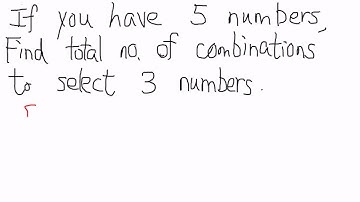 If you have 5 numbers,
Find total no. of combinations
to select 3 numbers.